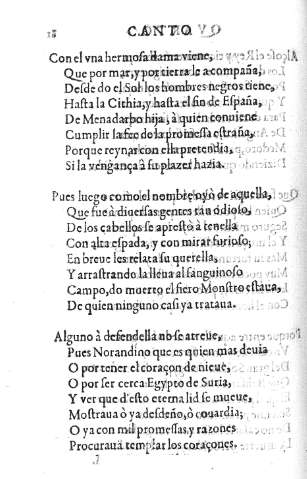 18 CANTO
Con el vna hermosa dama viene,
Que por mar, y por tierra le acompaña,
Desde do el Sol los hombres negros tiene,
Hasta la Cithia, y hasta el fin de España,
De Menadarbo hija, à quien conuiene
Cumplir la fee de la promessa estraña,
Porque reynar con ella pretendia,
Si la vengança à su plazer hazia.
Pues luego como el nombre oyò de aquella,
Que fue à diuersas gentes tan odiosa,
De los cabellos se aprestò à tenella
Con alta espada, y con mirar furioso,
En breue les relata su querella,
Y arrastrando la lleua al sanguinoso
Campo, do muerto el fiero Monstro estaua,
De quien ninguno casi ya trataua.
Alguno à defendella no se atreue,
Pues Norandino que es quien mas deuia
O por tener el coraçon de nieue,
O por ser cerca Egypto de Suria,
Y ver que d'esto eterna lid se mueue,
Mostraua ò ya desdeño, ò couardia;
O ya con mil promessas, y razones
Procuraua templar los coraçones.